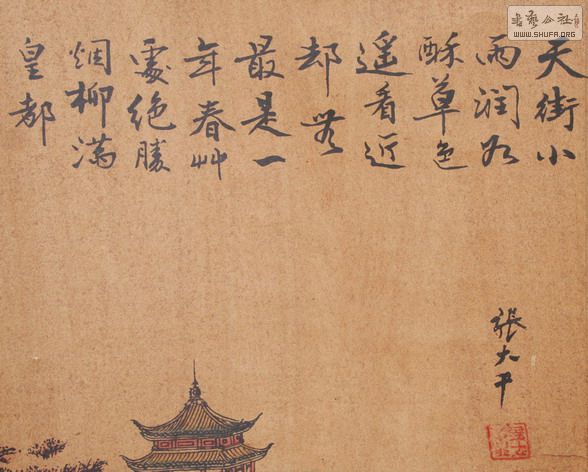 天街小
雨润如
酥草色
遥看近
却無
最是一
年春艸
處絶勝
烟柳满
皇都
張大平
書藝公社
WWW.SHUFA.ORG